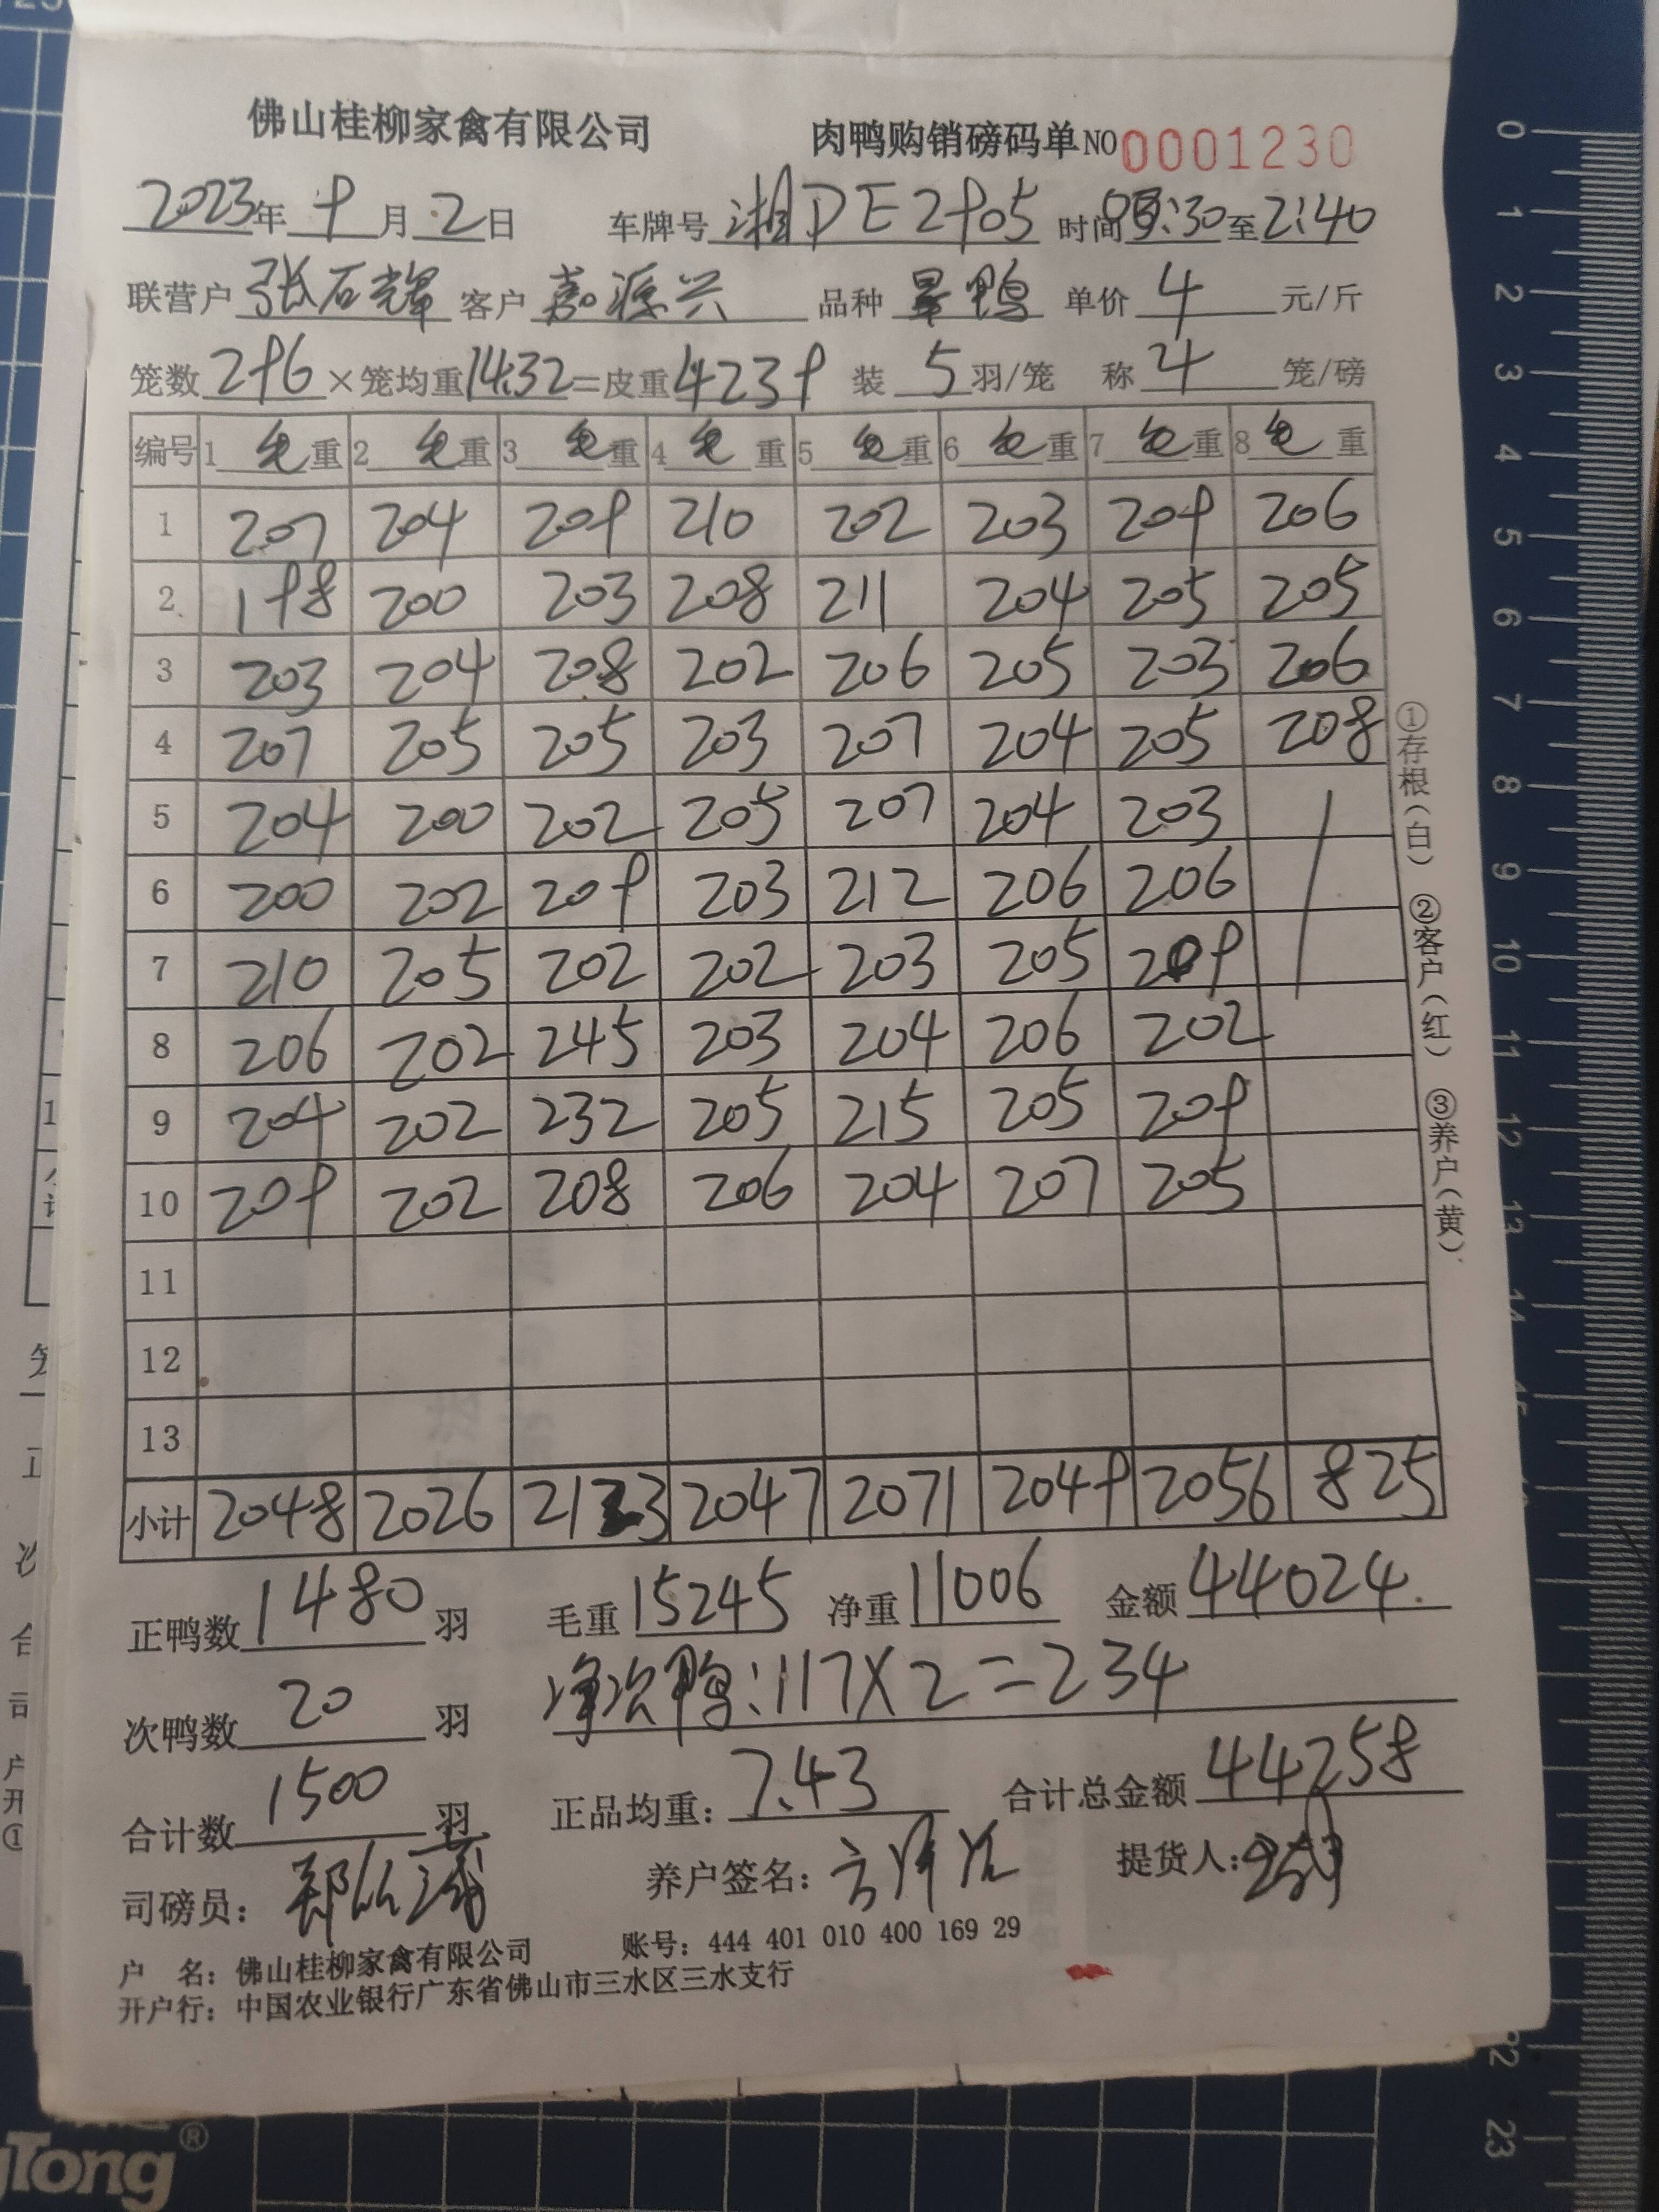 佛山桂柳家禽有限公司 肉鸭购销磅码单NO 0001230
2023年 9月 2日 车牌号 湘DE2905 时间 :30至2:40
联营户 张石辉 客户 嘉源兴 品种 鸭 单价 4 元/斤
笼数 296 ×笼均重 14.32 =皮重 4239 装 5 羽/笼 称 4 笼/磅
编号 1 毛重 2 毛重 3 毛重 4 毛重 5 毛重 6 毛重 7 毛重 8 毛重
1 207 204 209 210 202 203 209 206
2 198 200 203 208 211 204 205 205
3 203 204 208 202 206 205 203 206
4 207 205 205 203 207 204 205 208
5 204 200 202 205 207 204 203
6 200 202 209 203 212 206 206
7 210 205 202 202 203 205 209
8 206 202 245 203 204 206 202
9 204 202 232 205 215 205 209
10 209 202 208 206 204 207 205
11
12
13
小计 2048 2026 2123 2047 2071 2049 2056 825
正鸭数 1480 羽 毛重 15245 净重 11006 金额 44024.
次鸭数 20 羽 净次鸭:117×2=234
合计数 1500 羽 正品均重: 7.43 合计总金额 44258
司磅员: 郑 养户签名: 提货人:
户 名: 佛山桂柳家禽有限公司 账号: 444 401 010 400 169 29
开户行: 中国农业银行广东省佛山市三水区三水支行
①存根(白) ②客户(红) ③养户(黄)
0 1 2 3 4 5 6 7 8 9 10 11 12 13 14 15
22
23
Tong®